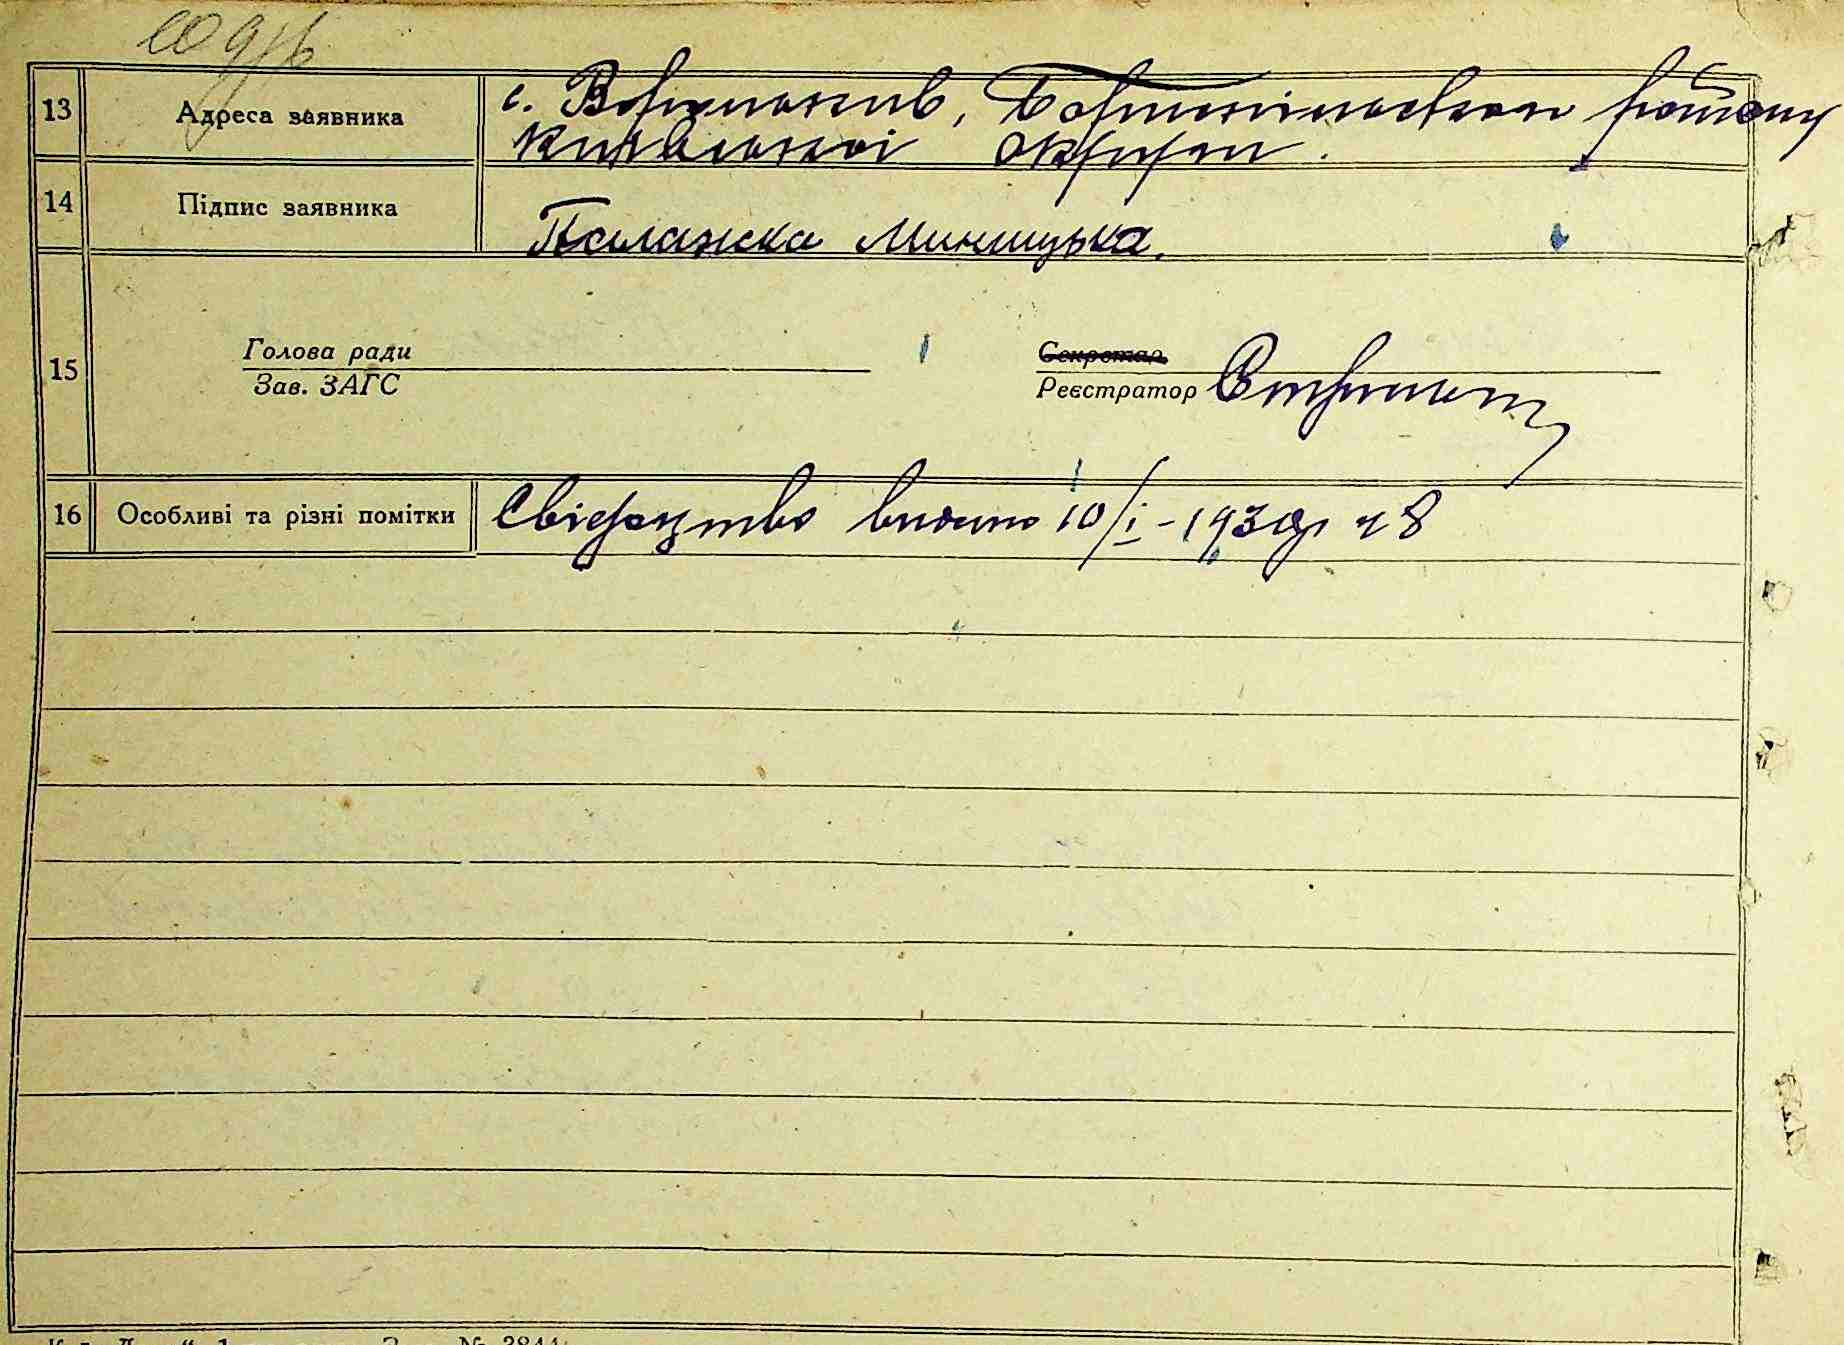 13 Адреса заявника с. Вороньків, Бориспільського району
Київської округи.
14 Підпис заявника Палажка Миницька.
15 Голова ради Секретар
Зав. ЗАГС Реєстратор
16 Особливі та різні помітки Свідоцтво видано 10/I - 1930р ч 8
№ 3844